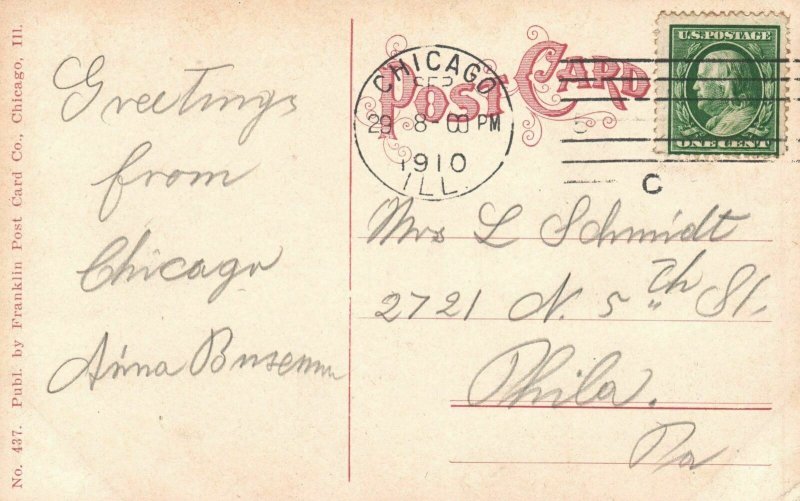 No. 437. Publ. by Franklin Post Card Co., Chicago, Ill.
Greetings
from
Chicago
Anna
POST CARD
CHICAGO
SEP
29 8-00 PM
1910
ILL.
C
U.S. POSTAGE
ONE CENT
Mrs L Schmidt
2721 N. 5th St.
Phila.
Pa